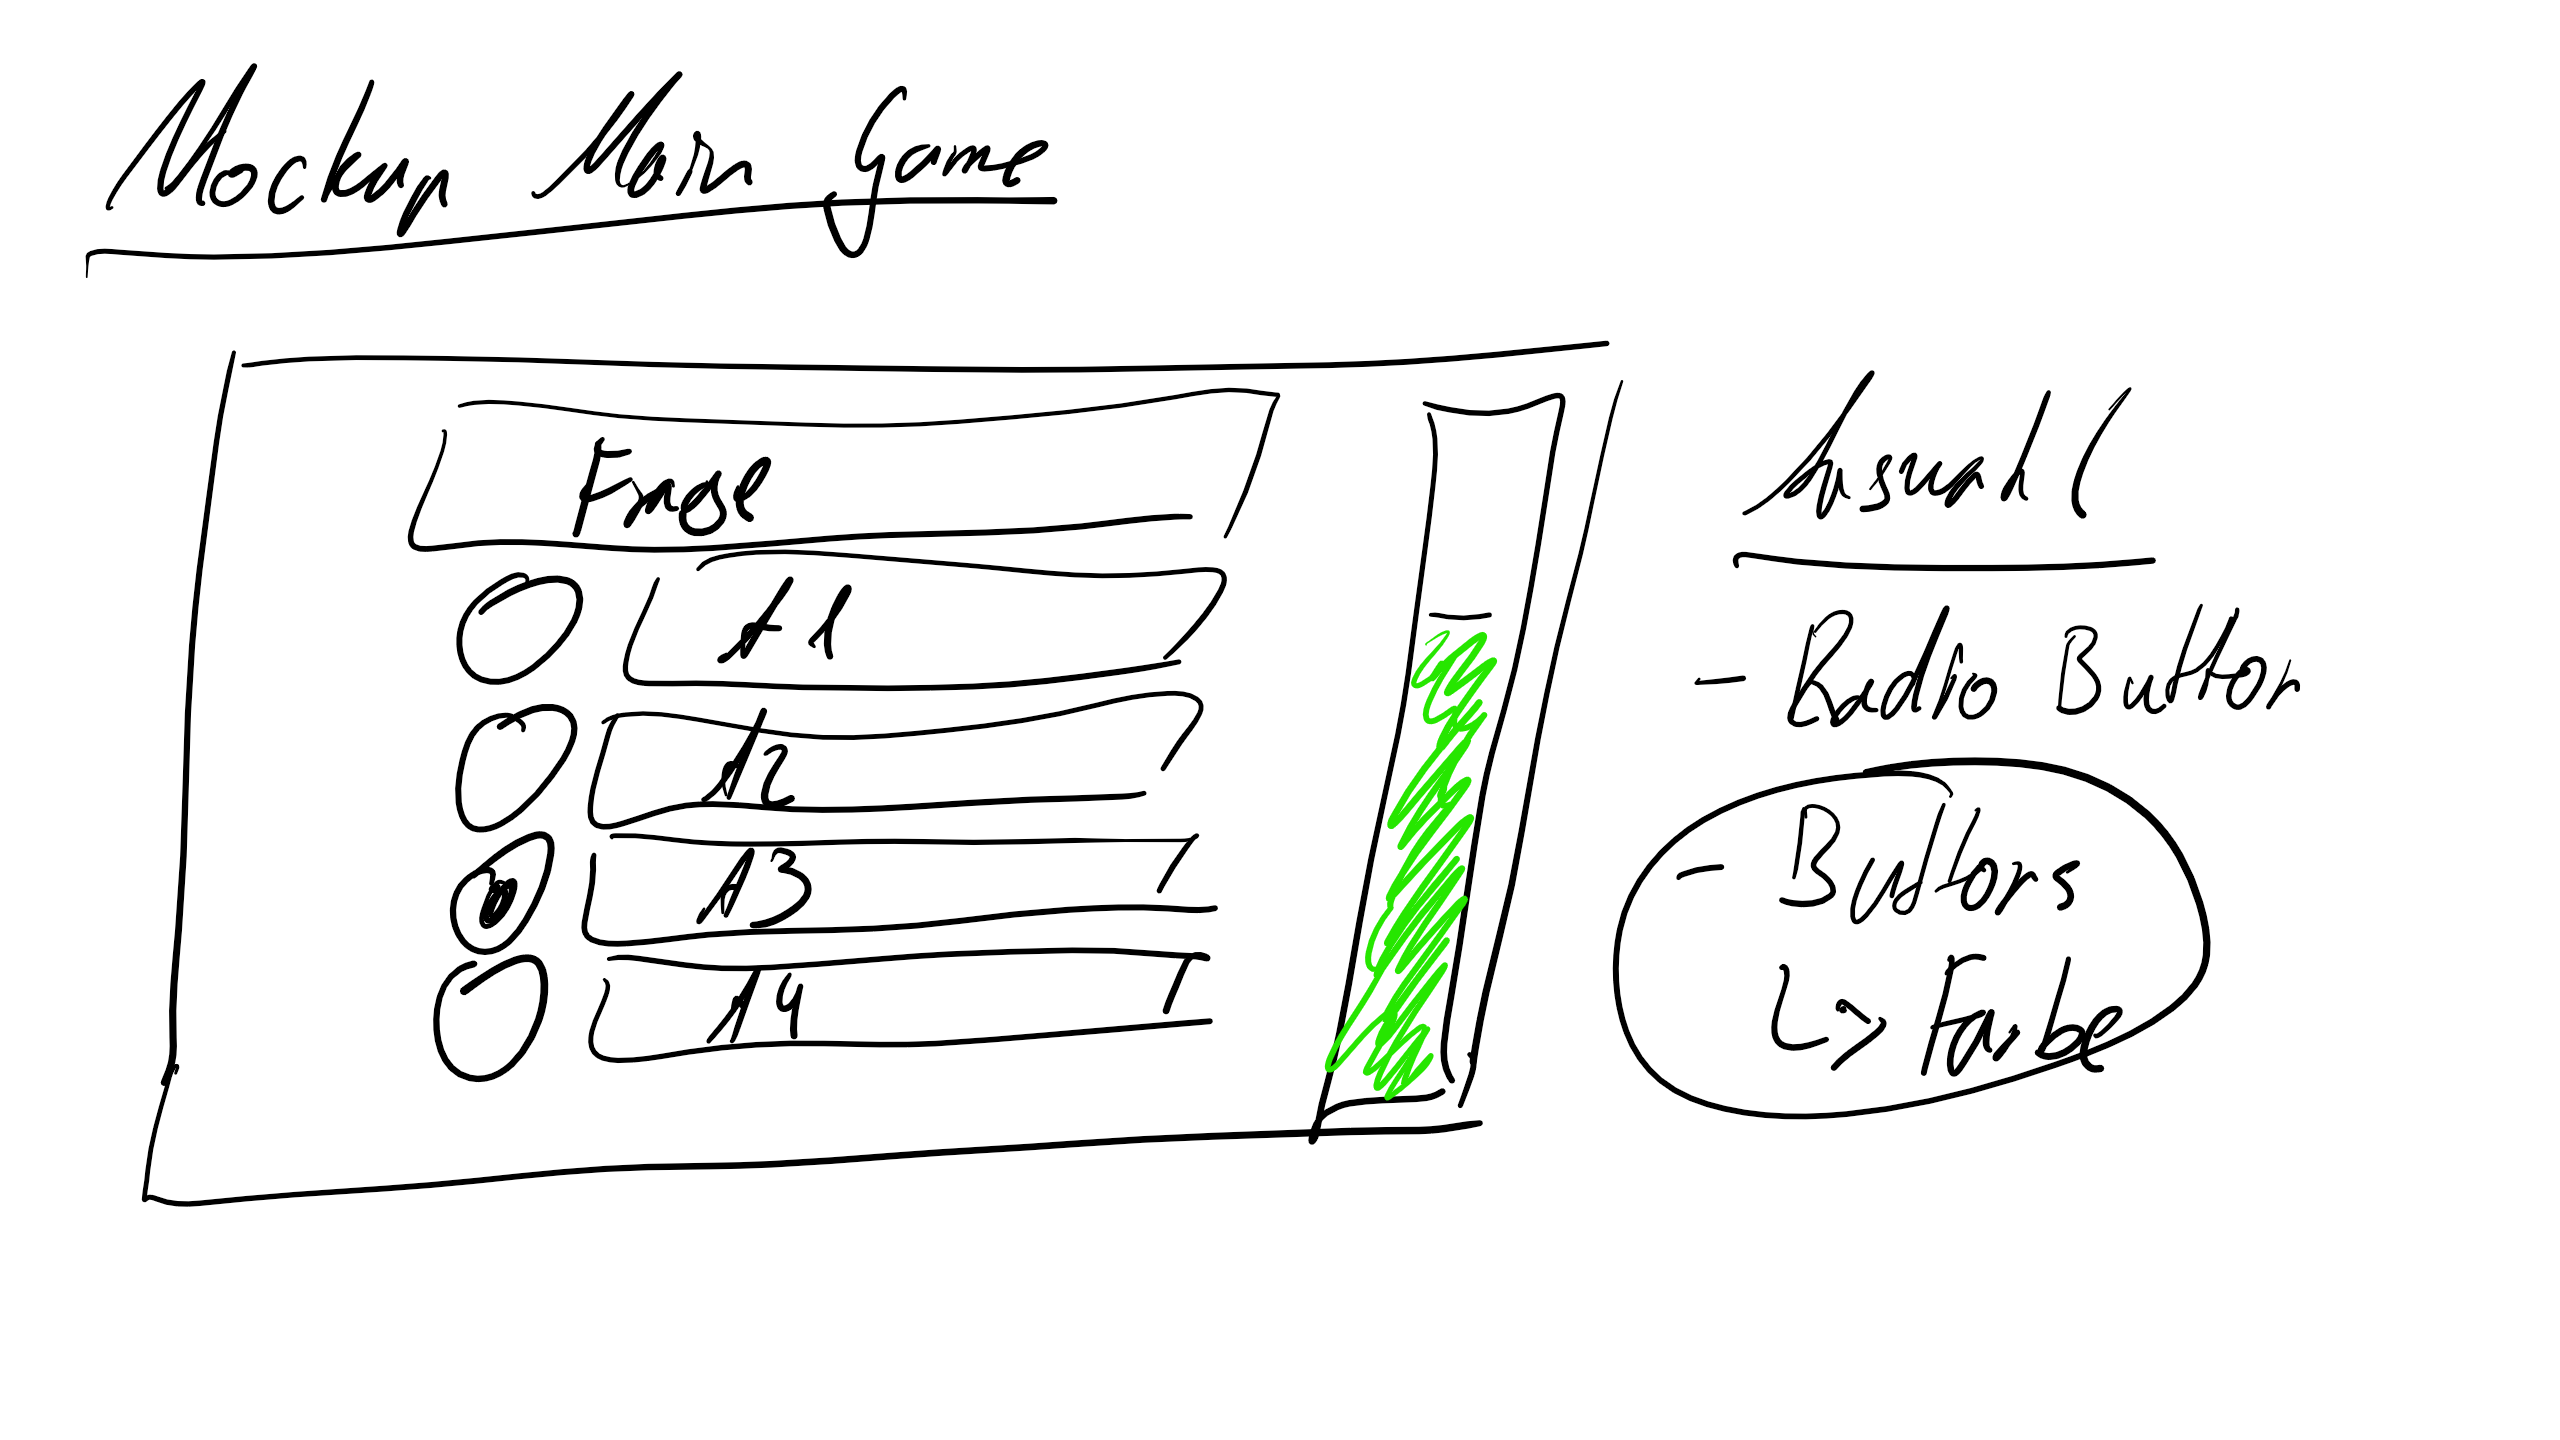 Mockup Main Game
Frage
A1
A2
A3
A4
Auswahl
- Radio Button
- Buttons
↳> Farbe